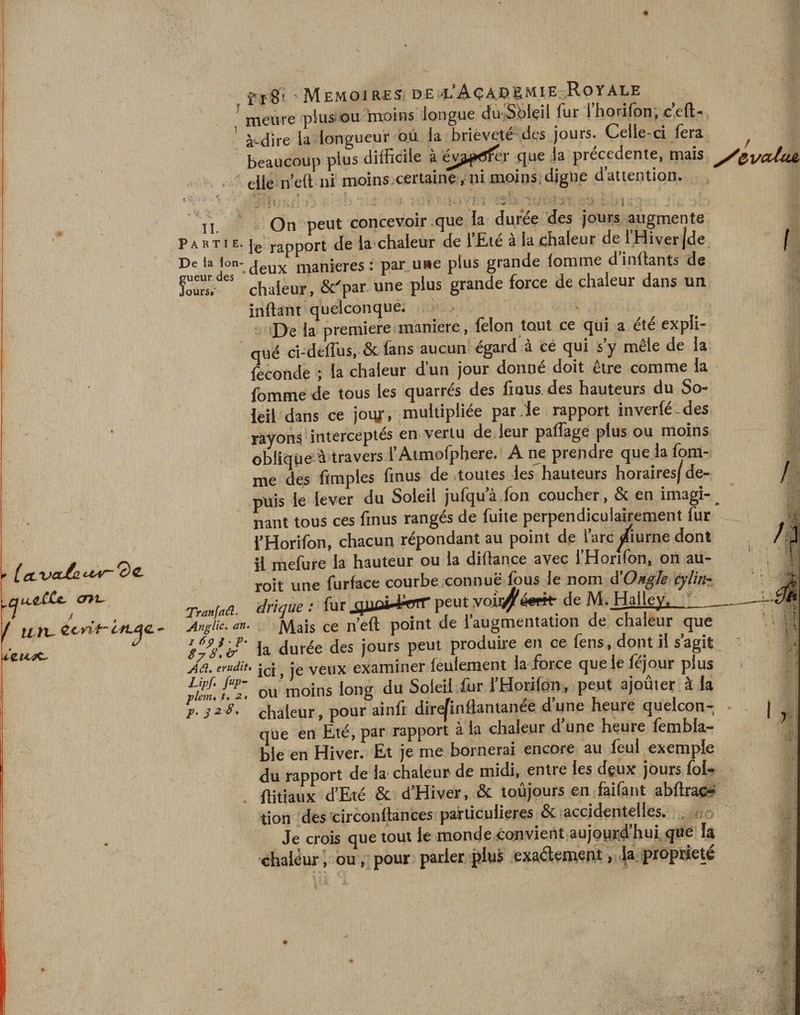 118 MEMOIRES DE L'ACADEMIE ROYALE
meure plus ou moins longue du Soleil sur l'horison, c'est-
à-dire la longueur ou la briéveté des jours. Celle-ci sera
beaucoup plus difficile à évaporer que la précedente, mais
évalue
elle n'est ni moins certaine, ni moins digne d'attention.
II.
PARTIE.
De la lon-
gueur des
Jours.
On peut concevoir que la durée des jours augmente
le rapport de la chaleur de l'Eté à la chaleur de l'Hiver de
deux manieres : par une plus grande somme d'instants de
chaleur, & par une plus grande force de chaleur dans un
instant quelconque.
De la premiere maniere, selon tout ce qui a été expli-
qué ci-dessus, & sans aucun égard à ce qui s'y mêle de la
seconde ; la chaleur d'un jour donné doit être comme la
somme de tous les quarrés des sinus des hauteurs du So-
leil dans ce jour, multipliée par le rapport inversé des
rayons interceptés en vertu de leur passage plus ou moins
oblique à travers l'Atmosphere. A ne prendre que la som-
me des simples sinus de toutes les hauteurs horaires de-
puis le lever du Soleil jusqu'à son coucher, & en imagi-
nant tous ces sinus rangés de suite perpendiculairement sur
l'Horison, chacun répondant au point de l'arc diurne dont
il mesure la hauteur ou la distance avec l'Horison, on au-
roit une surface courbe connuë sous le nom d'Ongle cylin-
drique : sur quoi l'on peut voir écrit de M. Halley.
la valeur de
laquelle on
un écrit inge-
nieux
Transact.
Anglic. an.
1693. p.
878. &
Act. erudit.
Lips. sup-
plem. t. 2.
p. 328.
Mais ce n'est point de l'augmentation de chaleur que
la durée des jours peut produire en ce sens, dont il s'agit
ici, je veux examiner seulement la force que le séjour plus
ou moins long du Soleil sur l'Horison, peut ajoûter à la
chaleur, pour ainsi dire instantanée d'une heure quelcon-
que en Eté, par rapport à la chaleur d'une heure sembla-
ble en Hiver. Et je me bornerai encore au seul exemple
du rapport de la chaleur de midi, entre les deux jours sol-
stitiaux d'Eté & d'Hiver, & toûjours en faisant abstrac-
tion des circonstances particulieres & accidentelles.
Je crois que tout le monde convient aujourd'hui que la
chaleur, ou, pour parler plus exactement, la proprieté